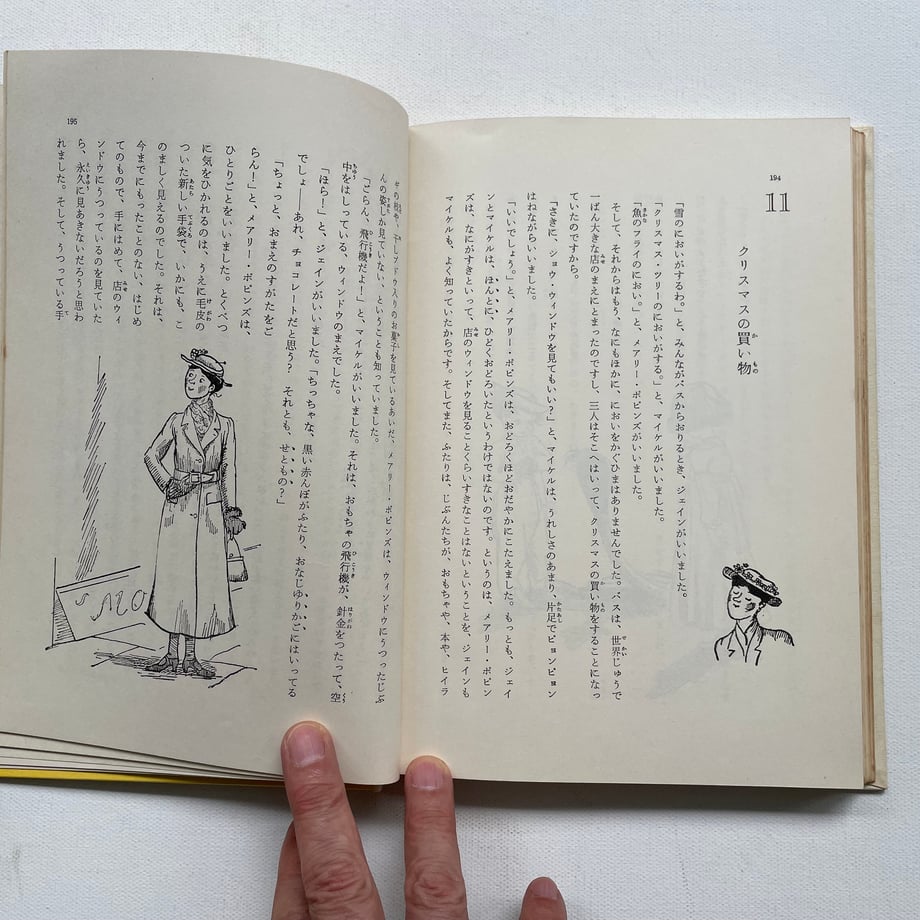 194
11
クリスマスの買い物
「雪のにおいがするわ。」と、みんながバスからおりるとき、ジェインがいいました。
「クリスマス・ツリーのにおいがする。」と、マイケルがいいました。
「魚のフライのにおい。」と、メアリー・ポピンズがいいました。
そして、それからはもう、なにもほかに、においをかぐひまはありませんでした。バスは、世界じゅうで
一ばん大きな店のまえにとまったのですし、三人はそこへはいって、クリスマスの買い物をすることになっ
ていたのですから。
「さきに、ショウ・ウィンドウを見てもいい？」と、マイケルは、うれしさのあまり、片足でピョンピョン
はねながらいいました。
「いいでしょう。」と、メアリー・ポピンズは、おどろくほどおだやかにこたえました。もっとも、ジェイ
ンとマイケルは、ほんとに、ひどくおどろいたというわけではないのです。というのは、メアリー・ポピン
ズは、なにがすきといって、店のウィンドウを見ることくらいすきなことはないということを、ジェインも
マイケルも、よく知っていたからです。そしてまた、ふたりは、じぶんたちが、おもちゃや、本や、ヒイラ
195
ギの枝や、干しブドウ入りのお菓子を見ているあいだ、メアリー・ポピンズは、ウィンドウにうつったじぶ
んの姿しか見ていない、ということも知っていました。
「ごらん、飛行機だよ！」と、マイケルがいいました。それは、おもちゃの飛行機が、針金をつたって、空
中をはしっている、ウィンドウのまえでした。
「ほら！」と、ジェインがいいました。「ちっちゃな、黒い赤んぼがふたり、おなじゆりかごにはいってる
でしょ――あれ、チョコレートだと思う？　それとも、せともの？」
「ちょっと、おまえのすがたをご
らん！」と、メアリー・ポピンズは、
ひとりごとをいいました。とくべつ
に気をひかれるのは、うえに毛皮の
ついた新しい手袋で、いかにも、こ
のましく見えるのでした。それは、
今までにもったことのない、はじめ
てのもので、手にはめて、店のウィ
ンドウにうつっているのを見ていた
ら、永久に見あきないだろうと思わ
れました。そして、うつっている手